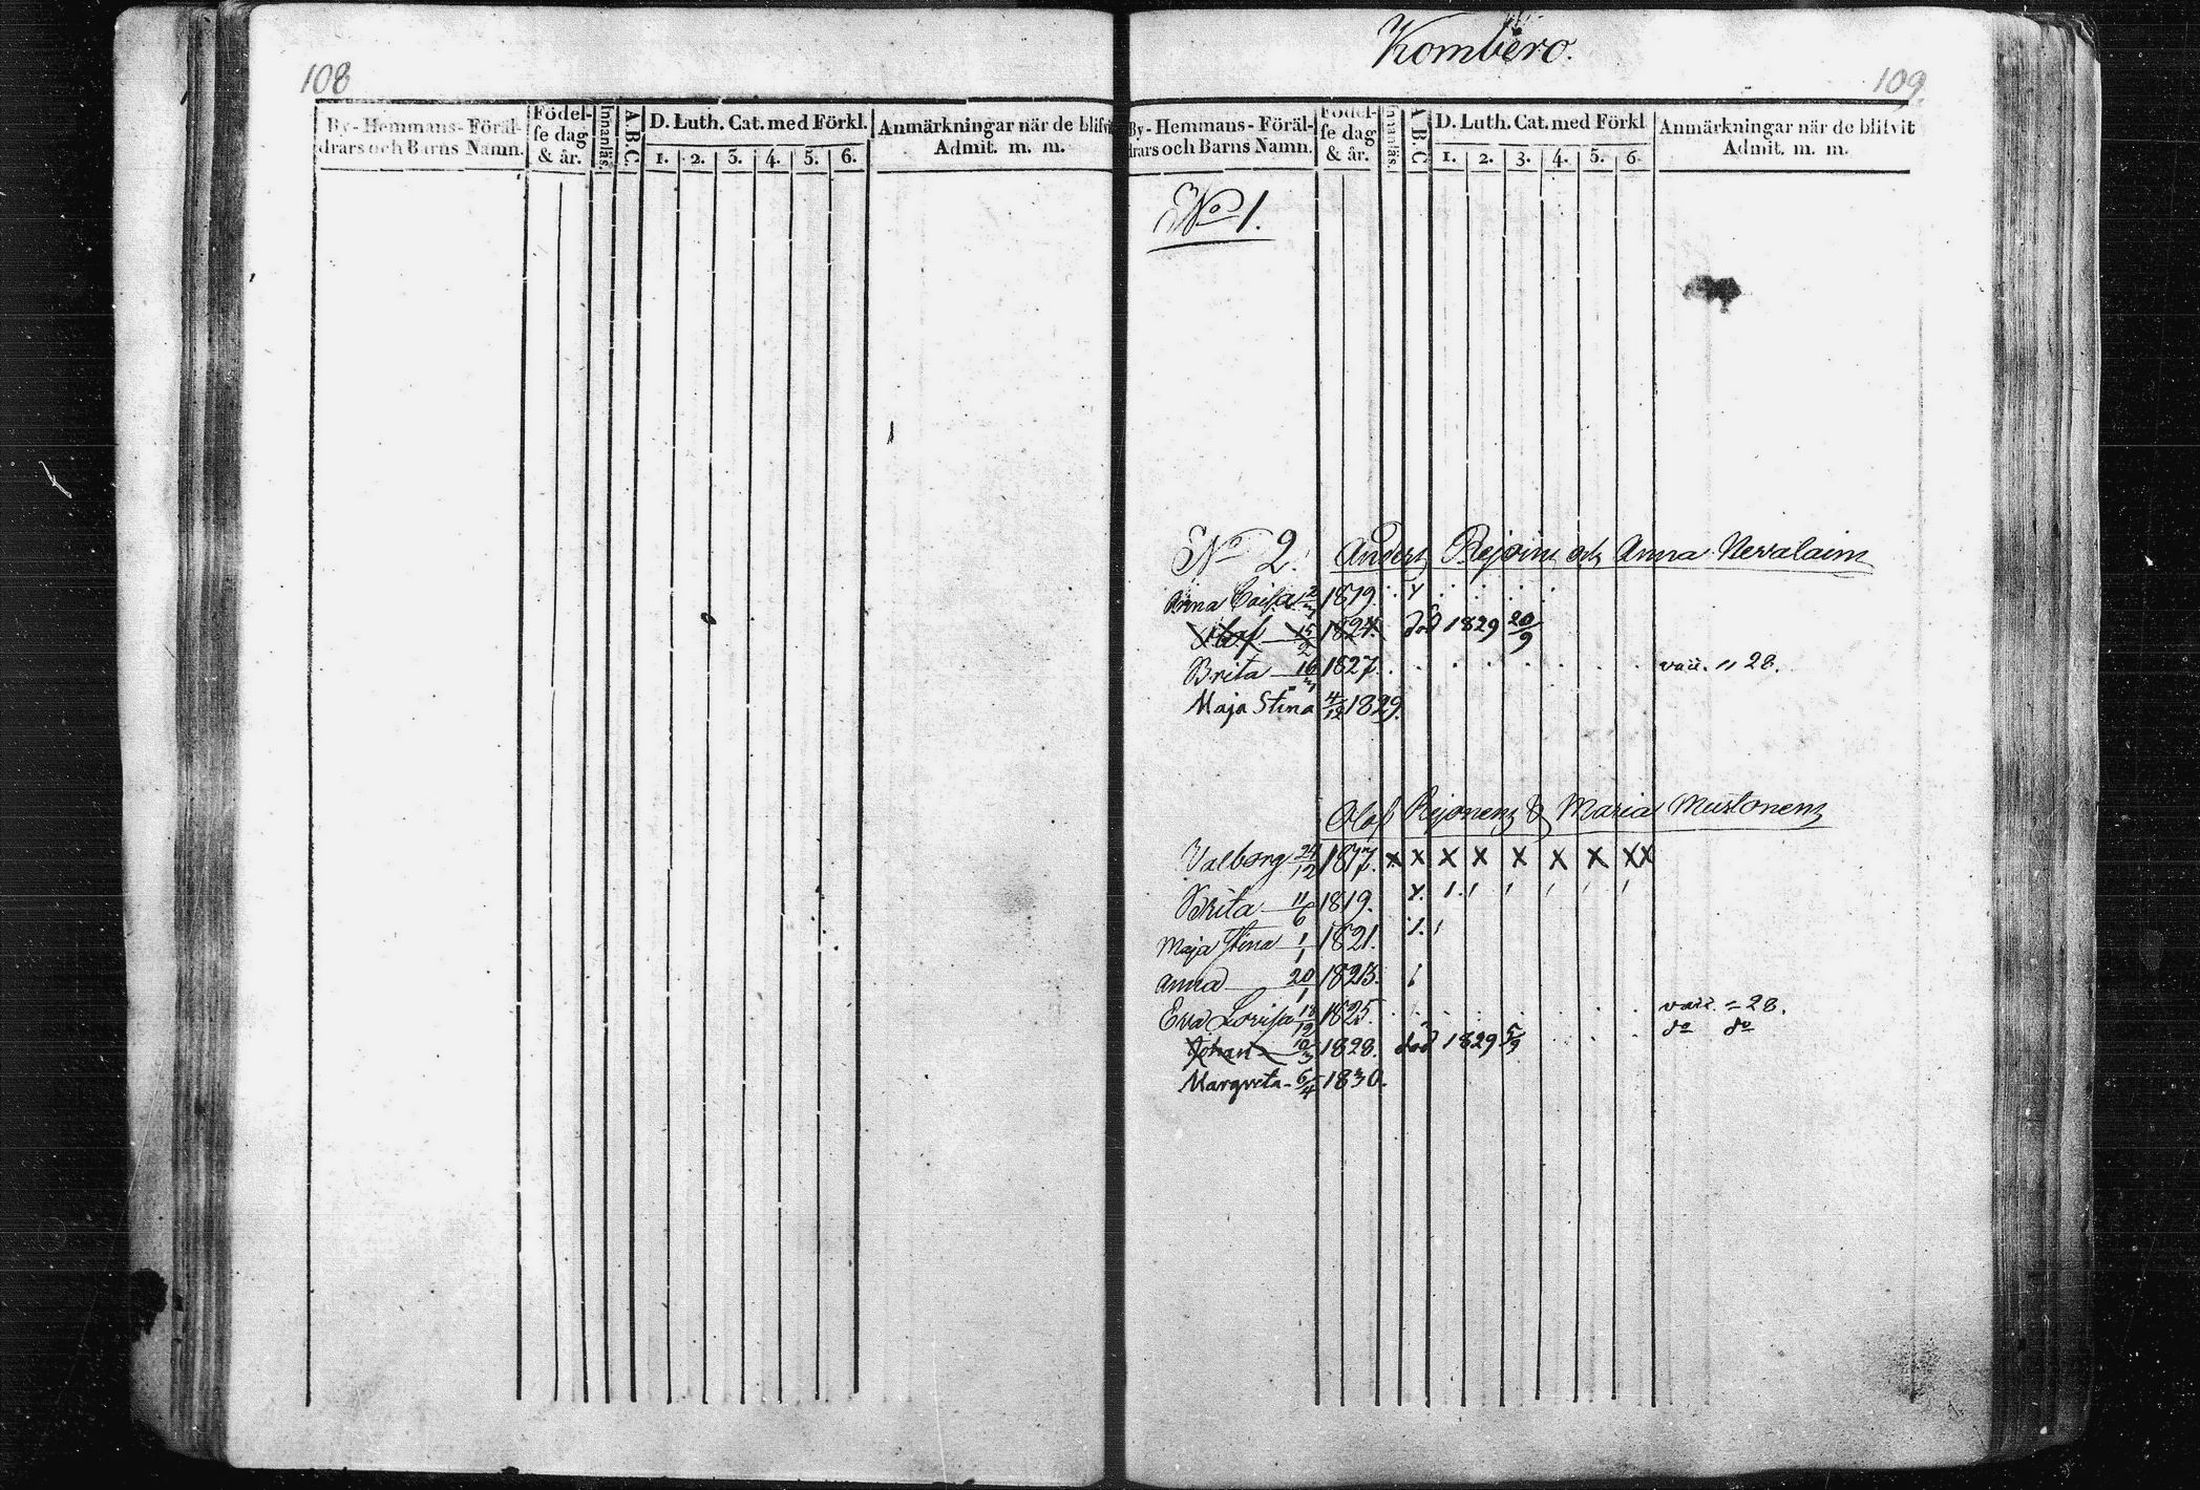 108
By-Hemmans-Föräl-
drars och Barns Namn.
Födel-
se dag
& år.
Innanläs.
A.B.C.
D. Luth. Cat. med Förkl.
1. 2. 3. 4. 5. 6.
Anmärkningar när de blifvit
Admit. m. m.
Kombero.
109.
By-Hemmans-Föräl-
drars och Barns Namn.
Födel-
se dag
& år.
Innanläs.
A.B.C
D. Luth. Cat. med Förkl
1. 2. 3. 4. 5. 6.
Anmärkningar när de blifvit
Admit. m. m.
No 1.
No 2. Anders Rejoin och Anna Nevalain
Anna Caisa 1819.
Olof 15/2 1824. död 1829 20/9
Brita 16 1827. vacc. 28.
Maja Stina 4/12 1829.
Olof Rejonen & Maria Mustonen
Valborg 24/12 1817. x x x x x x x x x
Brita 11/6 1819.
Maja Stina 1/1 1821.
Anna 20/1 1823.
Eva Lovisa 18/12 1825. vacc. 28.
Johan 10/3 1828. död 1829 5/9 do do
Margreta 6/4 1830.